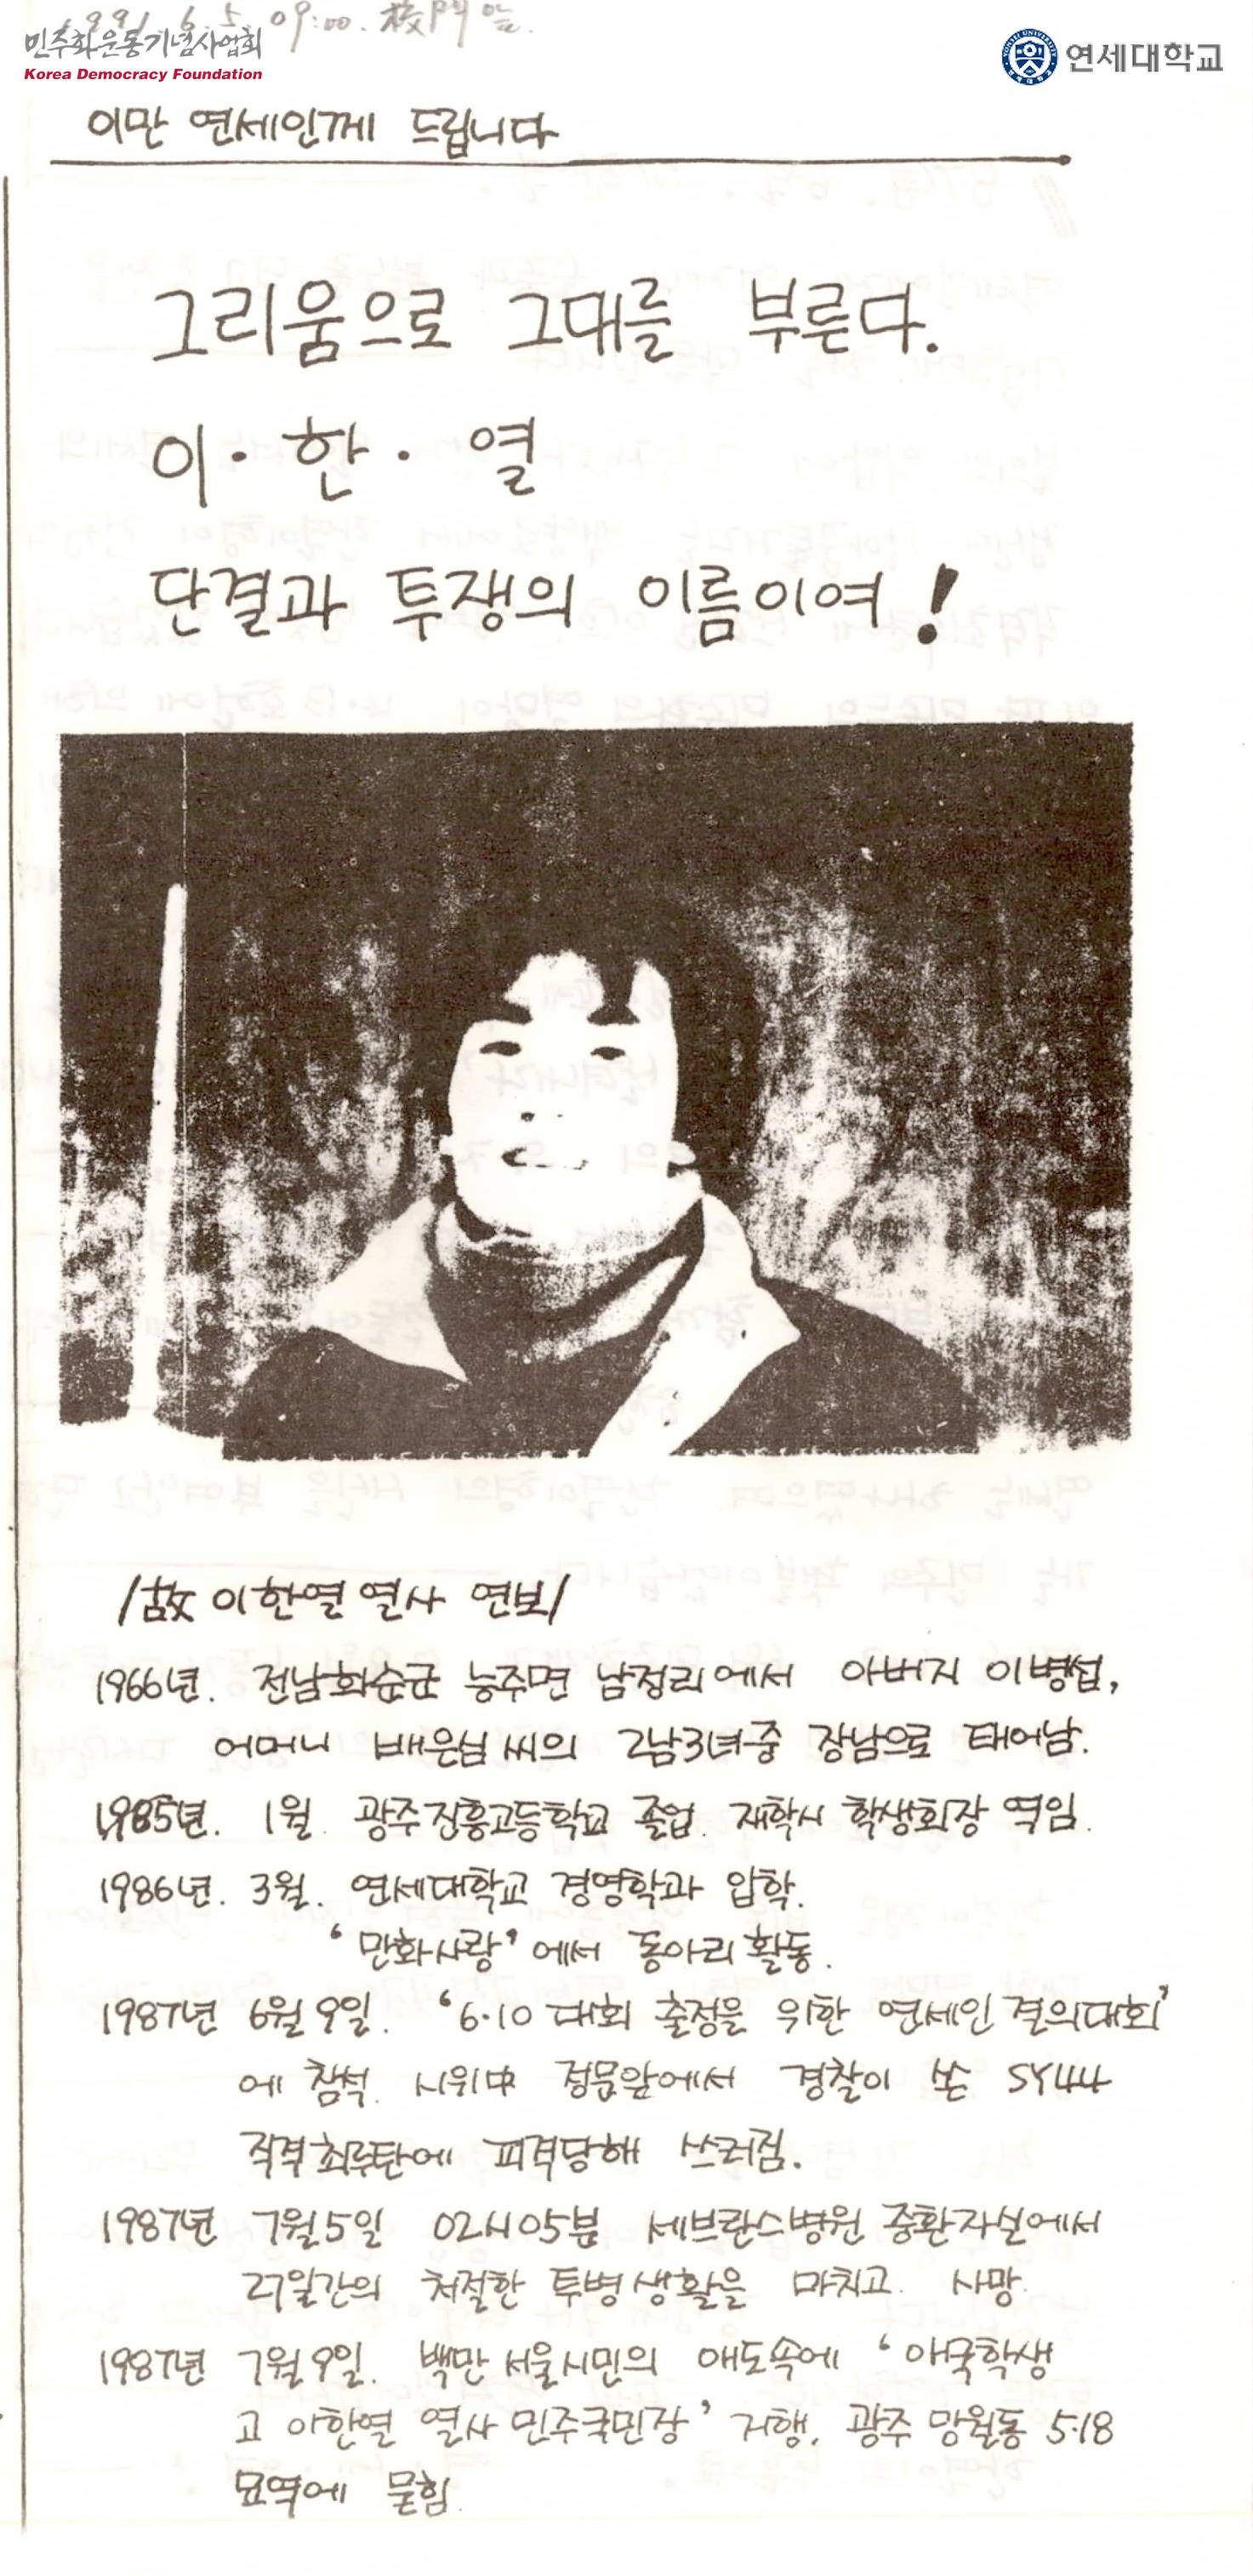 1991. 6. 5. 09:00. 校門 앞.
민주화운동기념사업회
Korea Democracy Foundation
연세대학교
이만 연세인께 드립니다
그리움으로 그대를 부른다.
이·한·열
단결과 투쟁의 이름이여!
/故 이한열 열사 연보/
1966년. 전남화순군 능주면 남정리에서 아버지 이병섭,
어머니 배은심씨의 2남3녀중 장남으로 태어남.
1985년. 1월. 광주진흥고등학교 졸업. 재학시 학생회장 역임.
1986년. 3월. 연세대학교 경영학과 입학.
'만화사랑'에서 동아리활동.
1987년 6월 9일. '6·10 대회 출정을 위한 연세인결의대회'
에 참석. 시위中 정문앞에서 경찰이 쏜 SY44
직격최루탄에 피격당해 쓰러짐.
1987년 7월5일 02시05분 세브란스병원 중환자실에서
27일간의 처절한 투병생활을 마치고 사망.
1987년 7월 9일. 백만 서울시민의 애도속에 '애국학생
고 이한열 열사 민주국민장' 거행. 광주 망월동 5·18
묘역에 묻힘.